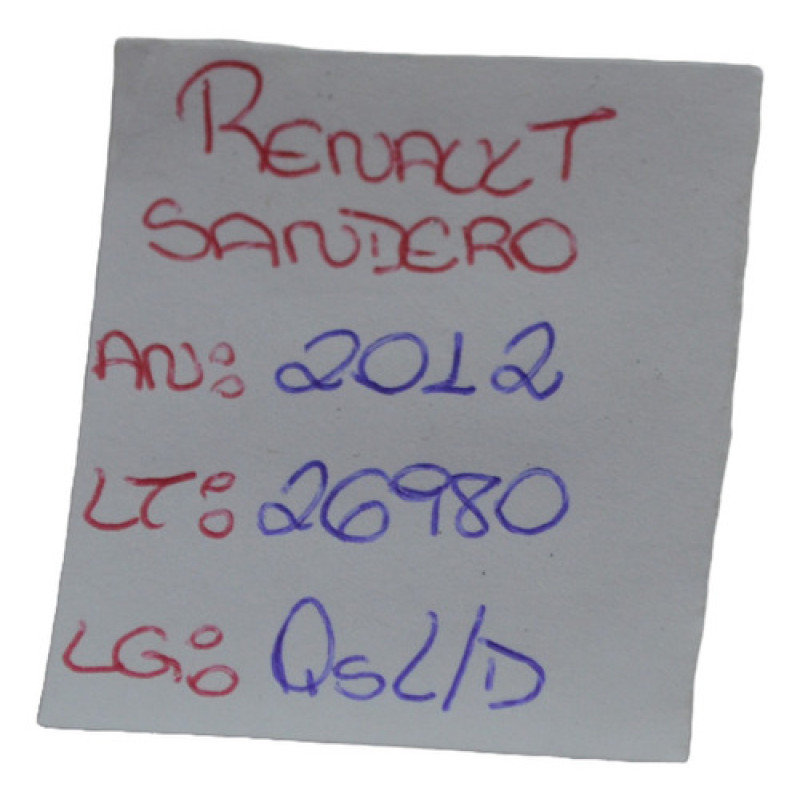 RENAULT
SANDERO
AN: 2012
LT: 26980
LG: QsL/D